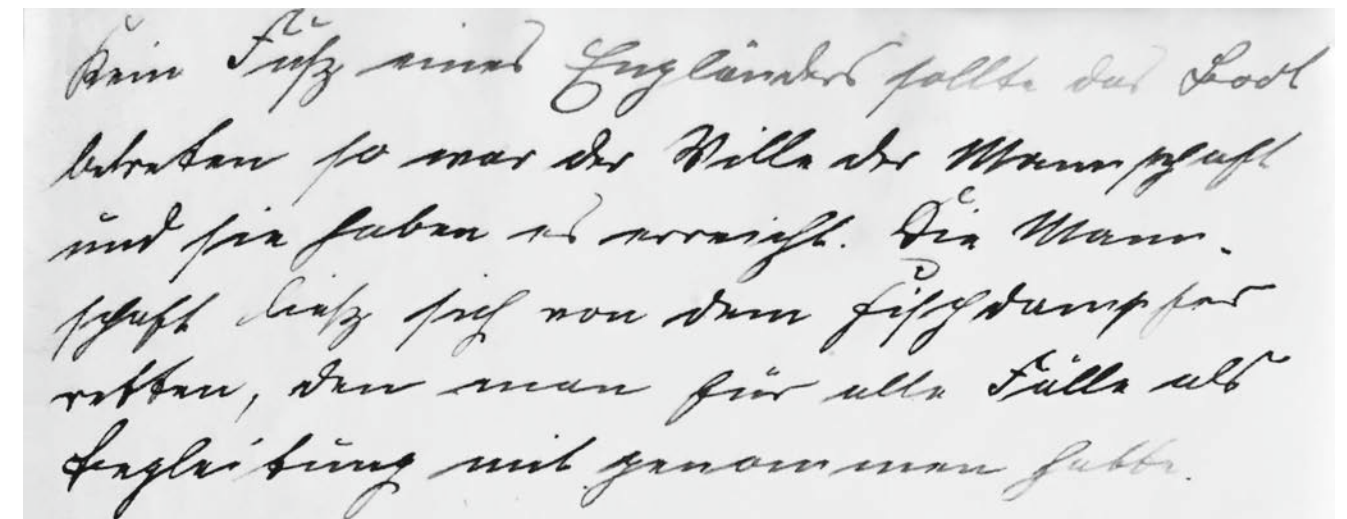 Kein Fuß eines Engländers sollte das Boot
betreten so war der Wille der Mannschaft
und sie haben es erreicht. Die Mann-
schaft ließ sich von dem Fischdampfer
retten, den man für alle Fälle als
Begleitung mit genommen hatte.